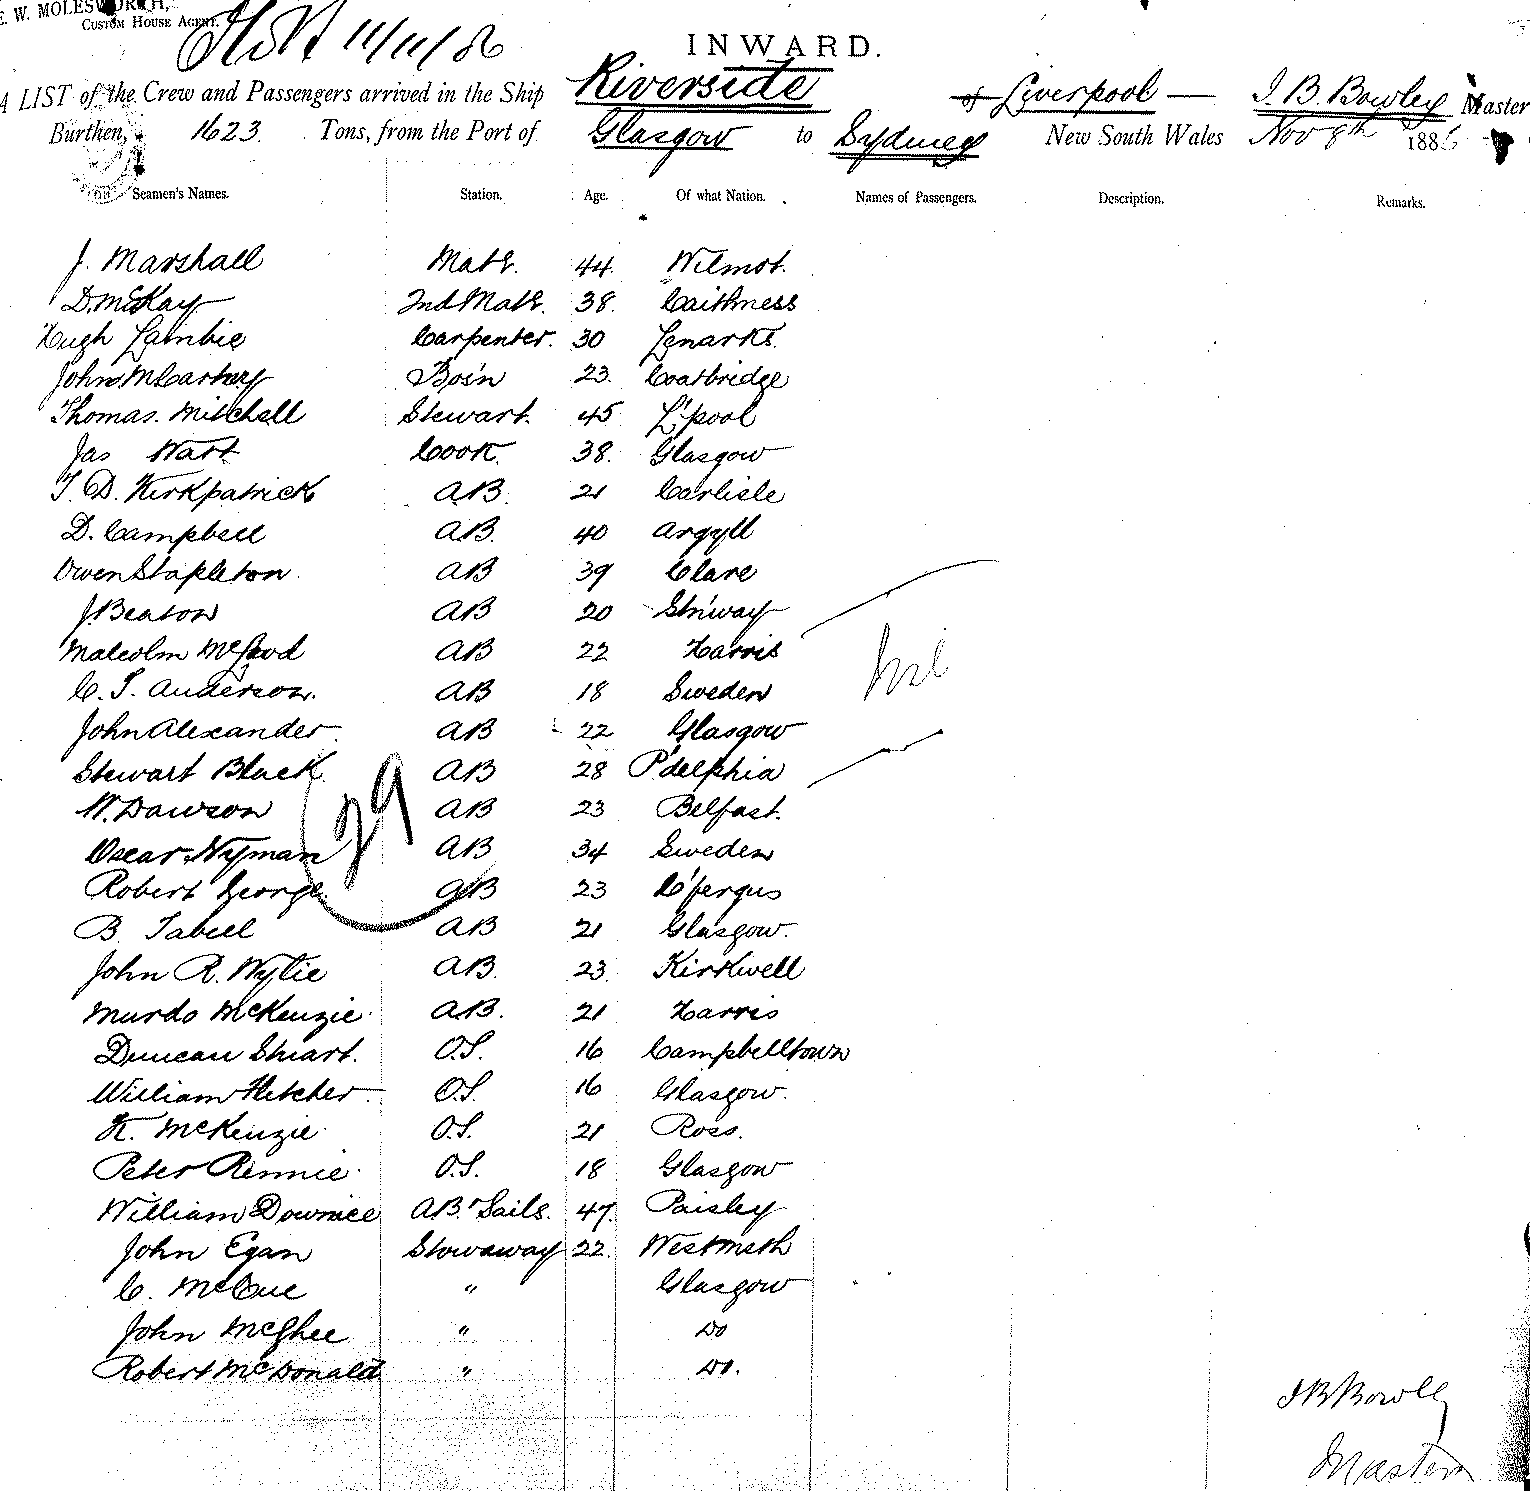 E. W. MOLESWORTH,
CUSTOM HOUSE AGENT.
11/11/86
INWARD.
A LIST of the Crew and Passengers arrived in the Ship Riverside of Liverpool — J. B. Bowley Master
Burthen, 1623 Tons, from the Port of Glasgow to Sydney New South Wales Nov 8th 1886
Seamen's Names. Station. Age. Of what Nation. Names of Passengers. Description. Remarks.
J. Marshall Mate. 44 Wilmot.
D. McKay 2nd Mate. 38. Caithness
Hugh Lambie Carpenter. 30 Lenarks.
John McCarthy Bo's'n 23. Coatbridge
Thomas. Mitchell Stewart. 45 L'pool
Jas Watt Cook. 38. Glasgow
T. D. Kirkpatrick AB. 21 Carlisle
D. Campbell AB. 40 Argyll
Owen Stapleton AB 39 Clare
J. Beaton AB 20 St'n'way
Malcolm McLeod AB 22 Harris
C. J. Anderson. AB 18 Sweden
John Alexander AB 22 Glasgow
Stewart Black AB 28 P'delphia
W. Dawson AB 23 Belfast.
Oscar Nyman AB 34 Sweden
Robert George AB 23 C'fergus
B. Tabell AB 21 Glasgow.
John R. Wylie AB. 23 Kirkwell
Murdo McKenzie AB. 21 Harris
Duncan Stuart. O.S. 16 Campbelltown
William Fletcher O.S. 16 Glasgow.
K. McKenzie O.S. 21 Ross.
Peter Rennie O.S. 18 Glasgow
William Downiee AB. Sails. 47. Paisley
John Egan Stowaway 22 Westmeth
C. McCue " Glasgow
John McGhee " Do
Robert McDonald " Do.
29
Nil
J B Bowley
Master